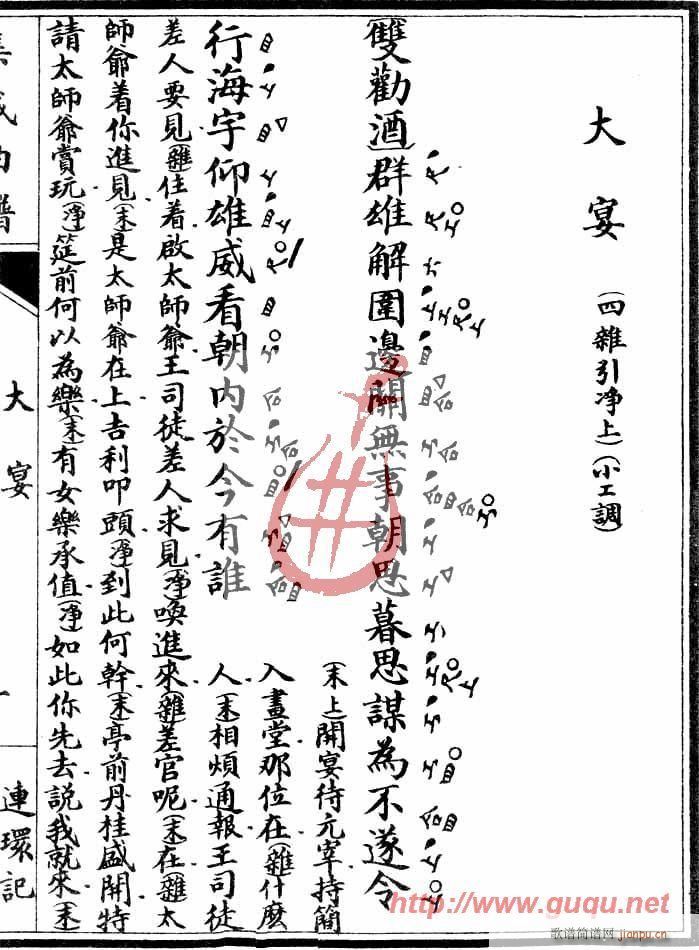 大宴
(四雜引净上)(小工調)
(雙勸酒)群雄解圍邊關無事朝思暮思謀為不遂令
行海宇仰雄威看朝内於今有誰
(末上)開宴待元宰持簡
入畫堂那位在(雜)什麼
人(末)相煩通報王司徒
差人要見(雜)住着啟太師爺王司徒差人求見(净)喚進來(雜)差官呢(末)在(雜)太
師爺着你進見(末)是太師爺在上吉利叩頭(净)到此何幹(末)亭前丹桂盛開特
請太師爺賞玩(净)筵前何以為樂(末)有女樂承值(净)如此你先去説我就來(末)
集成曲譜
大宴
一
連環記
http://www.guqu.net
歌谱简谱网
jianpu.cn